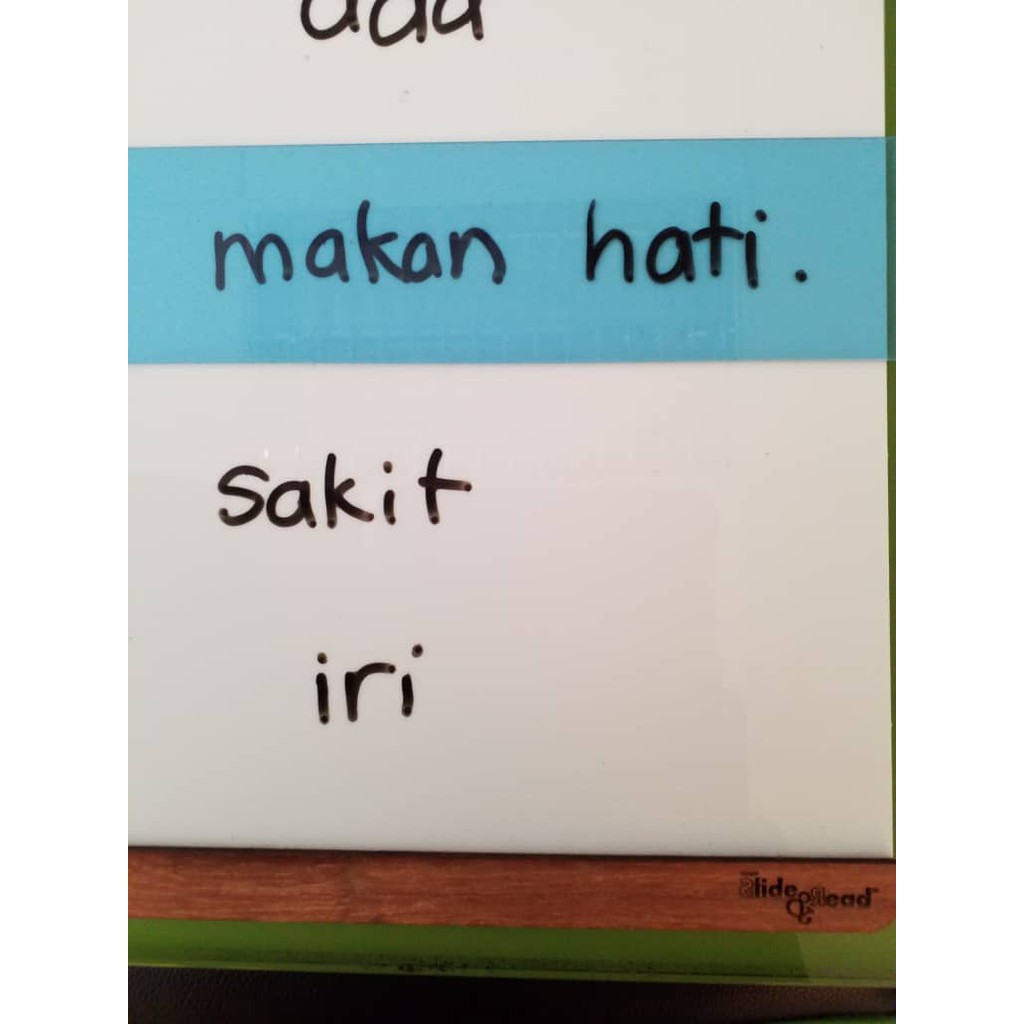 ada
makan hati.
sakit
iri
Slide & Read